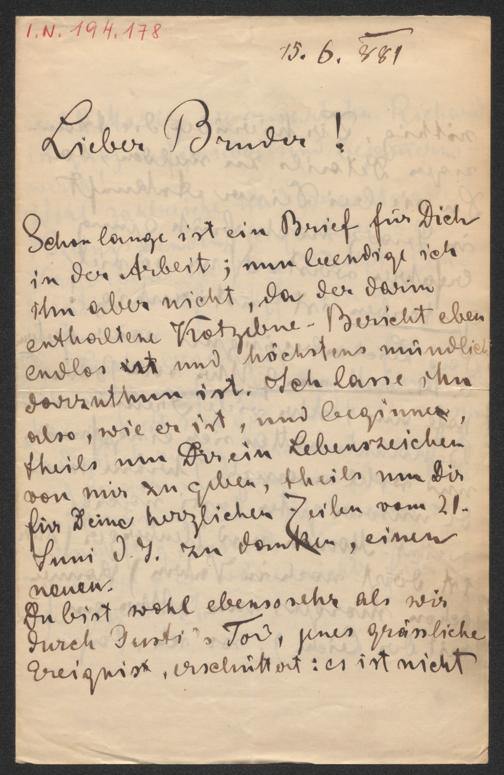 I.N. 194.178
15. 6. 881
Lieber Bruder!
Schon lange ist ein Brief für Dich
in der Arbeit; nun beendige ich
ihn aber nicht, da der darin
enthaltene Kotzebue-Bericht eben
endlos ist und höchstens mündlich
darzuthun ist. Ich lasse ihn
also, wie er ist, und beginne,
theils um Dir ein Lebenszeichen
von mir zu geben, theils um Dir
für Deine herzlichen Zeilen vom 21.
Juni d. J. zu danken, einen
neuen.
Du bist wohl ebensosehr als wir
durch Gusti's Tod, jenes grässliche
Ereignis, erschüttert: es ist nicht